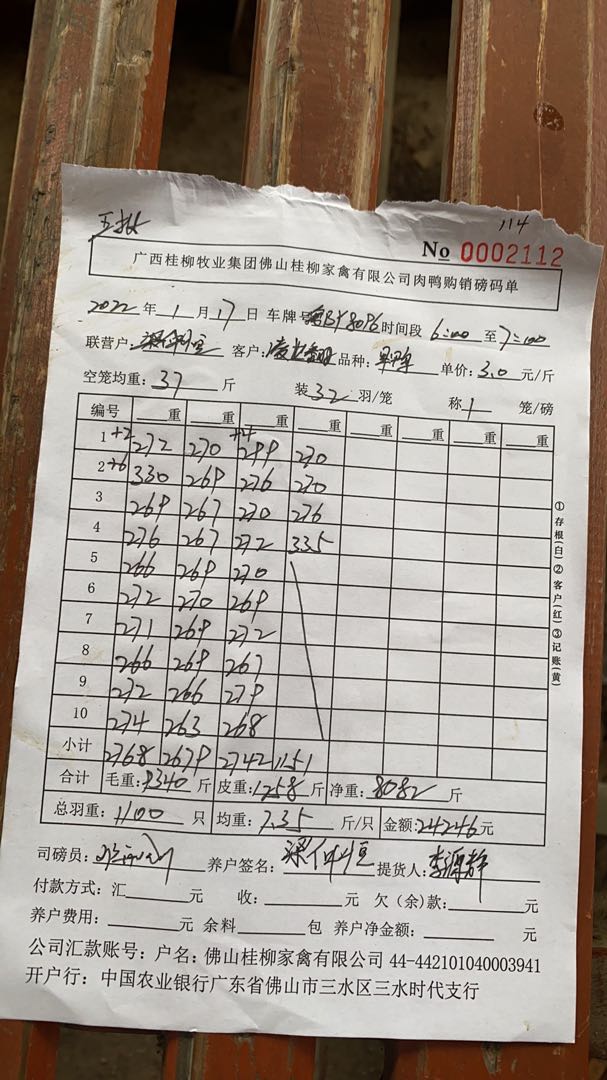 五批 114
No 0002112
广西桂柳牧业集团佛山桂柳家禽有限公司肉鸭购销磅码单
2022 年 1 月 17 日 车牌号 BY8096 时间段 6:00 至 7:00
联营户: 客户: 品种: 单价: 3.0 元/斤
空笼均重: 37 斤 装 32 羽/笼 称 1 笼/磅
编号 重 重 重 重 重 重 重 重
1 +2 272 270 299 270
2 +6 330 269 276 270
3 269 267 270 276
4 276 267 272 335
5 266 269 270
6 272 270 269
7 271 269 272
8 266 269 267
9 272 266 279
10 274 263 268
小计 2768 2679 2742 1151
合计 毛重: 9340 斤 皮重: 1258 斤 净重: 8082 斤
总羽重: 1100 只 均重: 7.35 斤/只 金额: 24246 元
司磅员: 养户签名: 提货人:
付款方式: 汇 元 收: 元 欠(余)款: 元
养户费用: 元 余料 包 养户净金额: 元
公司汇款账号: 户名: 佛山桂柳家禽有限公司 44-442101040003941
开户行: 中国农业银行广东省佛山市三水区三水时代支行
①存根(白)②客户(红)③记账(黄)